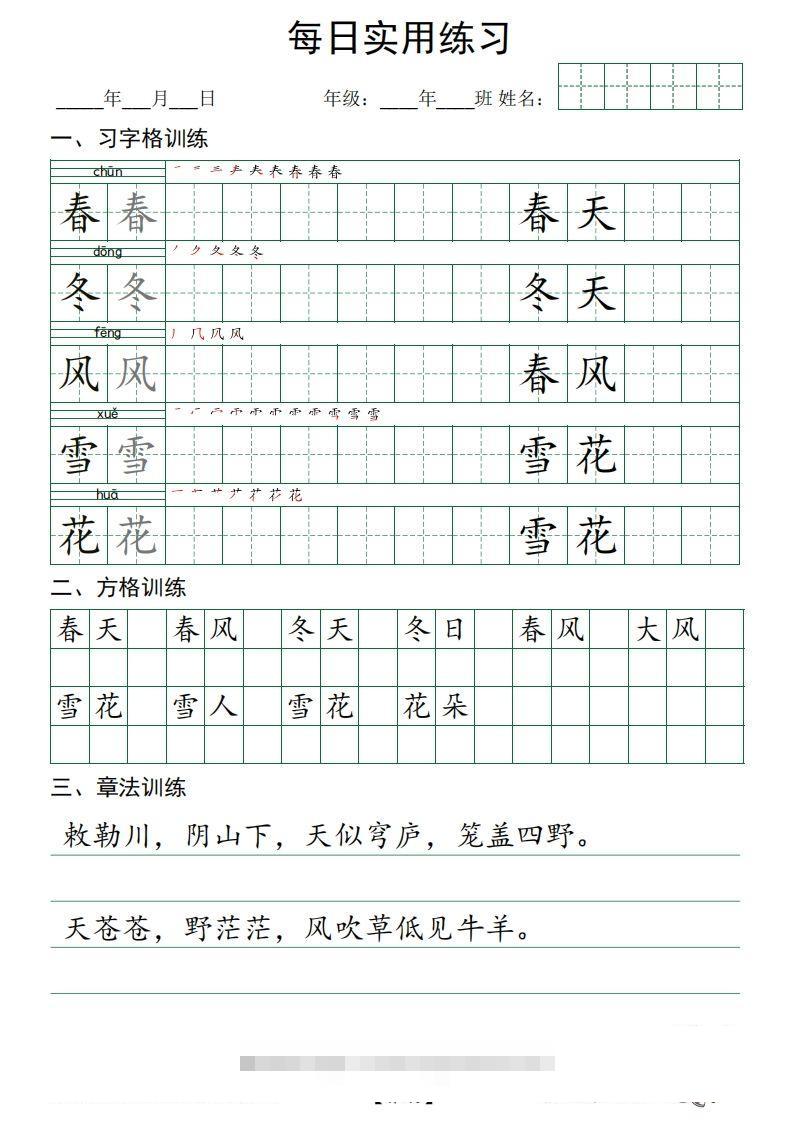 每日实用练习
_____年___月___日 年级：____年____班 姓名：
一、习字格训练
chūn
春 春 春 天
dōng
冬 冬 冬 天
fēng
风 风 春 风
xuě
雪 雪 雪 花
huā
花 花 雪 花
二、方格训练
春天 春风 冬天 冬日 春风 大风
雪花 雪人 雪花 花朵
三、章法训练
敕勒川，阴山下，天似穹庐，笼盖四野。
天苍苍，野茫茫，风吹草低见牛羊。